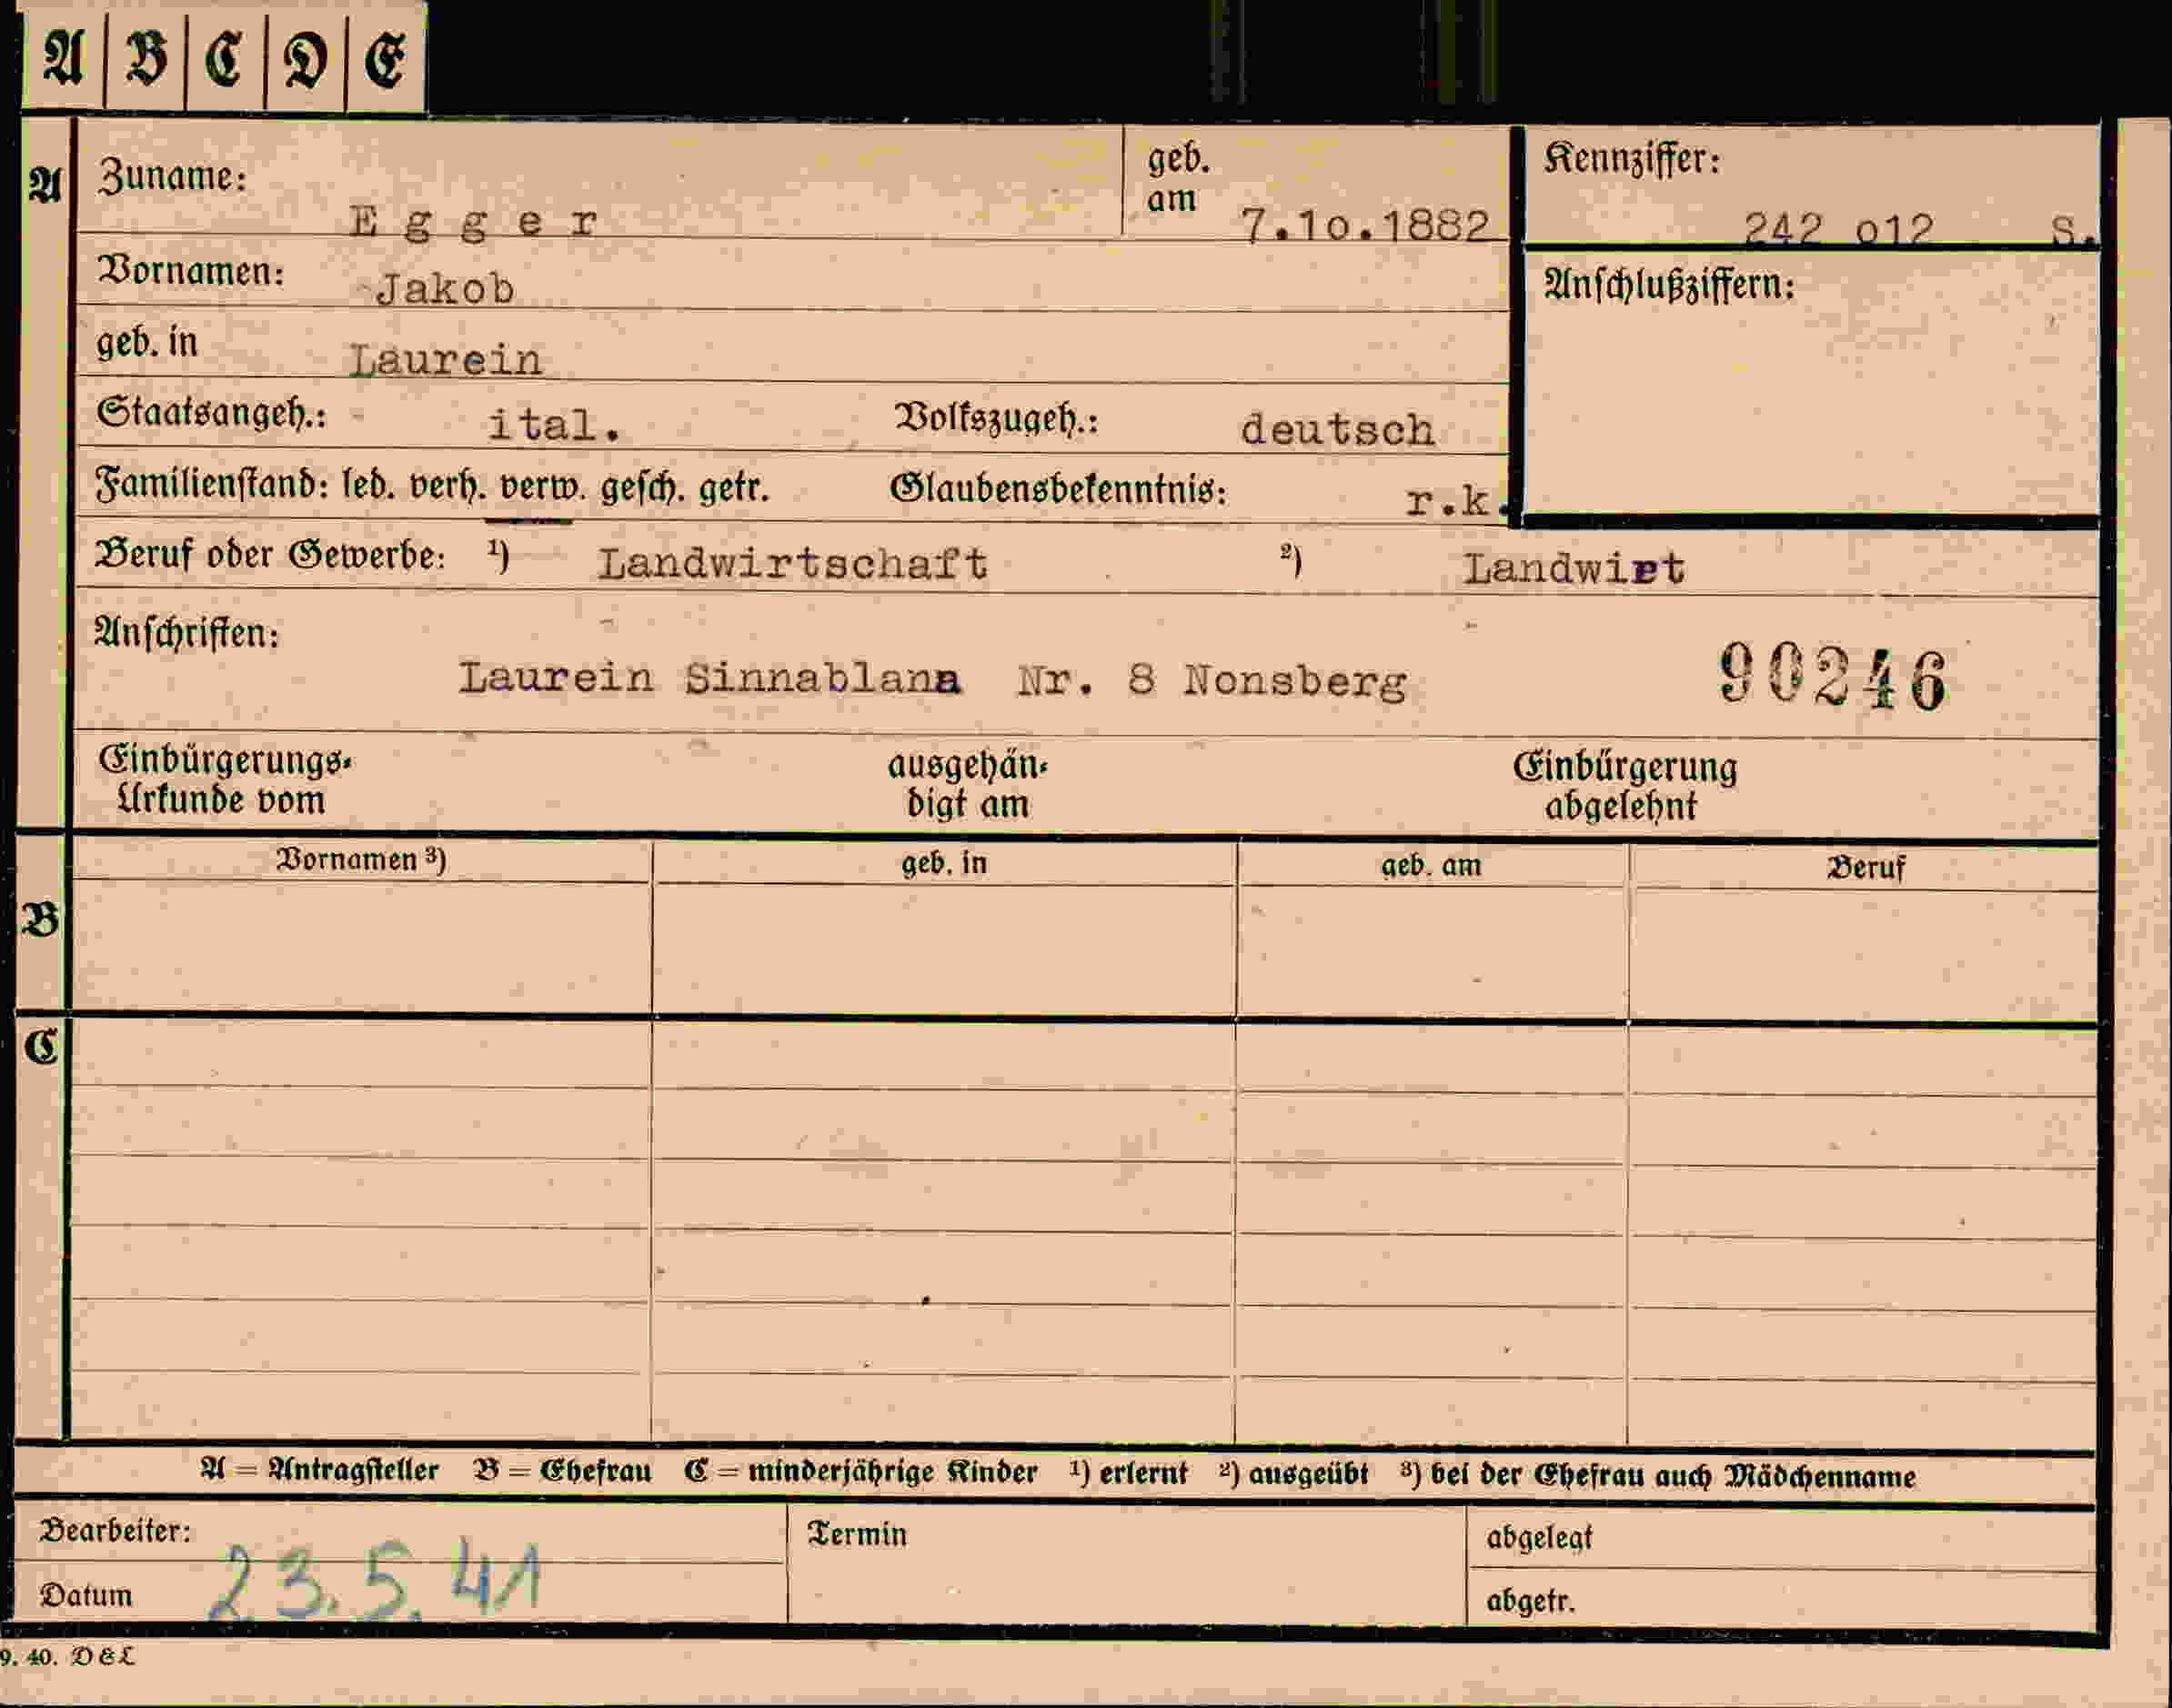 A B C D E
A Zuname: Egger geb. am 7.10.1882 Kennziffer: 242 012 S.
Vornamen: Jakob Anschlußziffern:
geb. in Laurein
Staatsangeh.: ital. Volkszugeh.: deutsch
Familienstand: led. verh. verw. gesch. getr. Glaubensbekenntnis: r.k.
Beruf oder Gewerbe: ¹) Landwirtschaft ²) Landwirt
Anschriften:
Laurein Sinnablana Nr. 8 Nonsberg 90246
Einbürgerungs- ausgehän- Einbürgerung
Urkunde vom digt am abgelehnt
Vornamen ³) geb. in geb. am Beruf
B
C
A = Antragsteller B = Ehefrau C = minderjährige Kinder ¹) erlernt ²) ausgeübt ³) bei der Ehefrau auch Mädchenname
Bearbeiter: Termin abgelegt
Datum 23.5.41 abgetr.
9. 40. D & L